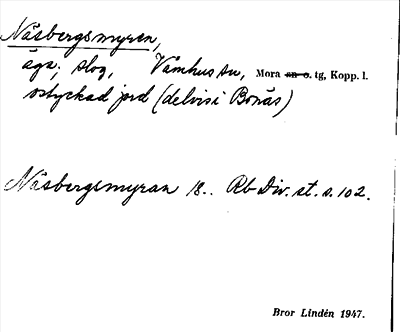 Näsbergsmyren,
äga; slog, Våmhus sn, Mora sn o. tg, Kopp. l.
ostyckad jord (delvis i Bonäs)
Näsbergsmyran 18.. Rb Div. st. s. 102.
Bror Lindén 1947.